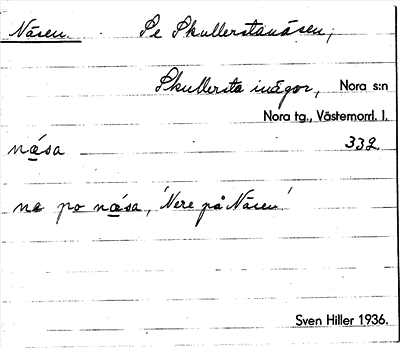 Näsen. Se Skullerstanäsen;
Skullersta inägor, Nora s:n
Nora tg., Västernorrl. l.
næsa 332.
ne po næsa, 'Nere på Näsen'
Sven Hiller 1936.